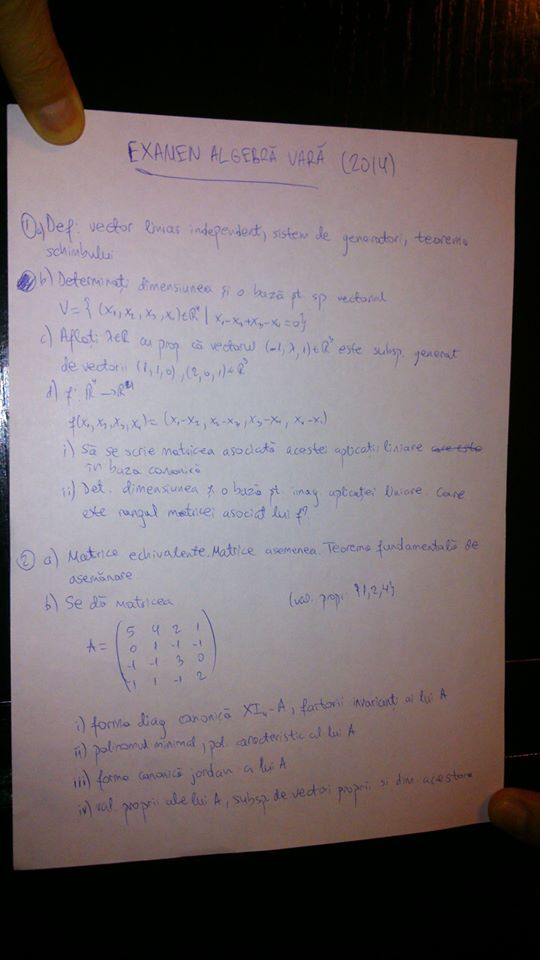 EXAMEN ALGEBRĂ VARĂ (2014)
① a) Def: vector liniar independent, sistem de generatori, teorema
schimbului
b) Determinați dimensiunea și o bază pt. sp vectorial
V = { (x₁, x₂, x₃, x₄) ∈ ℝ⁴ | x₁-x₂+x₃-x₄=0}
c) Aflați λ∈ℝ cu prop că vectorul (-1, λ, 1) ∈ ℝ³ este subsp. generat
de vectorii (1, 1, 0), (2, 0, 1) ∈ ℝ³
d) f: ℝ⁴ → ℝ⁴
f(x₁, x₂, x₃, x₄) = (x₁-x₂, x₂-x₃, x₃-x₄, x₄-x₁)
i) Să se scrie matricea asociată acestei aplicatii liniare care este
în baza canonică
ii) Det. dimensiunea și o bază pt. imag. aplicației liniare. Care
este rangul matricei asociat lui f?
② a) Matrice echivalente. Matrice asemenea. Teorema fundamentală de
asemănare
b) Se dă matricea (val. propr. {1,2,4}
A = ( 5 4 2 1
0 1 -1 -1
-1 -1 3 0
-1 1 -1 2 )
i) forma diag canonică XI₄-A, factorii invarianți ai lui A
ii) polinomul minimal, pol. caracteristic al lui A
iii) forma canonică jordan a lui A
iv) val. proprii ale lui A, subsp. de vectori proprii si dim. acestora